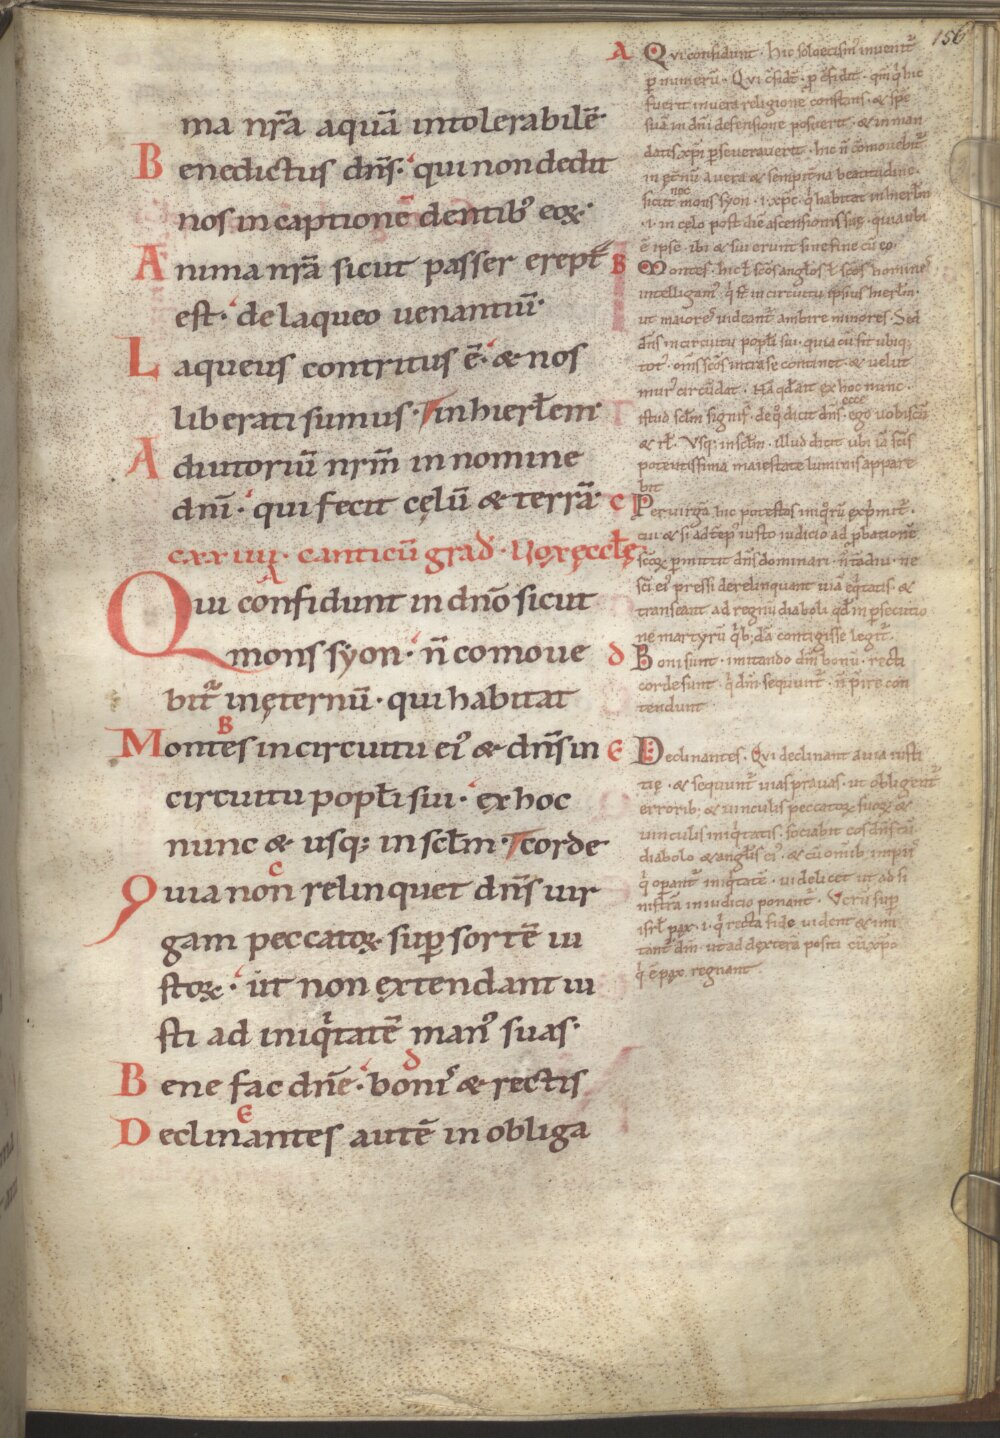 156
ma nr̄a aquā intolerabilē·
Benedictus dn̄s· qui non dedit
nos in captionē dentib⁹ eoꝝ·
Anima nr̄a sicut passer erept̄
est· de laqueo uenantiū·
Laqueus contritus ē· & nos
liberati sumus· in hierłem
Adiutoriū nrm̄ in nomine
dnī· qui fecit cęlū & terrā·
cxxiiii· canticū grad̄· Uox ęccłę
A
Qui confidunt in dnō sicut
mons syon· n̄ comoue
bit᷑ in ęternū· qui habitat
B
Montes in circuitu ei⁹ & dn̄s in
circuitu popłi sui· ex hoc
nunc & usq; in scłm· corde
C
Quia non relinquet dn̄s uir
gam peccatoꝝ sup̄ sortē iu
stoꝝ· ut non extendant iu
sti ad iniq̇tatē man⁹ suas·
d
Bene fac dn̄e· boni⁹ & rectis
E
Declinantes autē in obliga
A Qui confidunt· hic soloecism⁹ inuenit᷑
p̄ numerū· Qui c̄fidt̄· p̄ c̄fidit· qm̄ q̇ hic
fuerit in uera religione constans· & spē
suā in dn̄i defensione posuerit· & in man
datis xp̄i p̄seuerauerit· hic n̄ cōmouebit᷑
in ęt̄nū a uera & sempit̄na beatitudine·
sicut mons syon· .i. xp̄c· q̇ habitat in hierłm
.i. in celo post diē ascensionis suę· quia ubi
ē ipse· ibi & sui erunt sine fine cū eo·
B Montes· hic ł scōs angłos ł scōs homines
intelligam⁹· q̇ st̄ in circuitu ipsius hierłm·
ut maiores uideant᷑ ambire minores· Sed
dn̄s in circuitu popłi sui· quia cū sit ubiq;
tot⁹· om̄s scōs intra se continet· & uelut
mur⁹ circūdat· Nā qd̄ ait ex hoc nunc·
istud scłm signif̄· de q̊ dicit dn̄s· ecce ego uobiscū
& rł· Usq; in scłm· illud dicit ubi iā scīs
potentissima maiestate luminis appare
bit
C Per uirgā hic potestas iniq̊rū exṗmit᷑·
cui & si ad tēp⁹ iusto iudicio ad p̄bationē
scōꝝ p̄mittit dn̄s dominari· n̄ tādiu· ne
scī ei⁹ pressi derelinquant uiā eq̇tatis· &
transeant ad regnū diaboli qd̄ in p̄secutio
ne martyrū q̇b;dā contigisse legit᷑·
d Boni sunt· imitando dm̄ bonū· recti
corde sunt· q̇ dm̄ sequunt᷑· n̄ p̄ire con
tendunt
E Declinantes· Qui declinant a uia iusti
tię· & sequunt᷑ uias prauas· ut obligent᷑
errorib; & uinculis peccatoꝝ suoꝝ &
uinculis iniq̇tatis· sociabit eos dn̄s cū
diabolo & angłis ei⁹· & cū omib; impiis
q̇ operant᷑ iniq̇tatē· uidelicet ut ad si
nistrā in iudicio ponant᷑· Uerū sup̄
isrł pax· .i. q̇ recta fide uident & imi
tant᷑ dm̄· ut ad dextera positi cū xp̄o
q̇ ē pax regnant